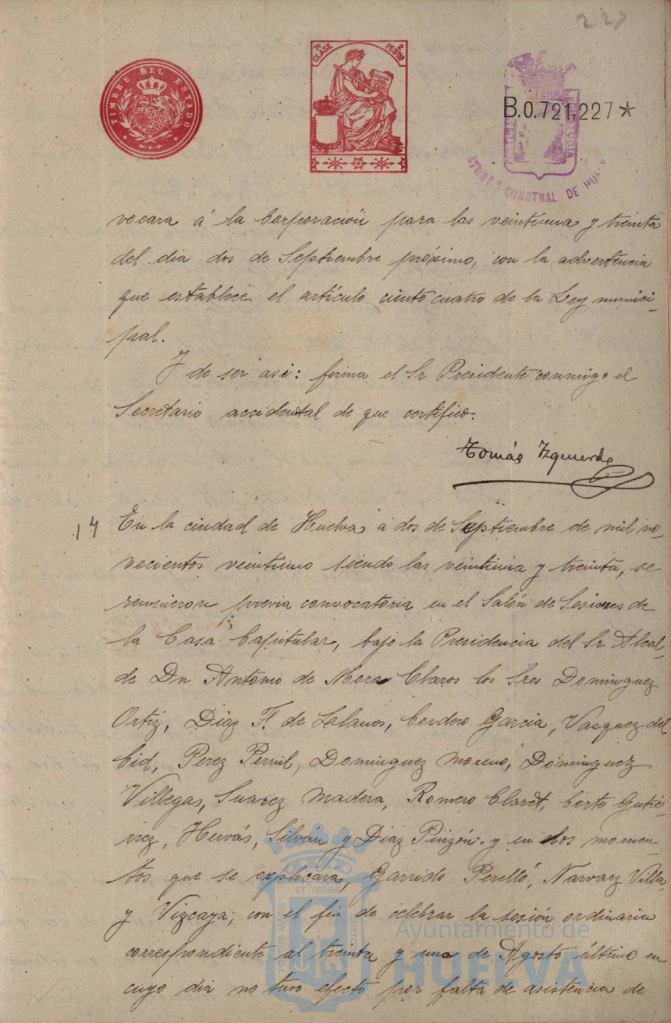 227
TIMBRE DEL ESTADO
7ª CLASE
PESETAS
B.0.721,227*
AYUNT° CONSTNAL DE HUELVA
vocara á la Corporación para las veintiuna y treinta
del dia dos de Septiembre próximo, con la advertencia
que establece el artículo ciento cuatro de la Ley munici-
pal.
Y de ser asi: firma el Sr Presidente conmigo el
Secretario accidental de que certifico.
Tomás Izquierdo
14
En la ciudad de Huelva á dos de Septiembre de mil no-
vecientos veintiuno siendo las veintiuna y treinta, se
reunieron previa convocatoria en el Salón de Sesiones de
la Casa Capitular, bajo la Presidencia del Sr Alcal-
de Dn Antonio de Mora Claros los Sres Dominguez
Ortiz, Diaz F. de Lalanos, Cordero Garcia, Vasquez del
Cid, Perez Pernil, Dominguez Moreno, Dominguez
Villegas, Suarez Madera, Romero Claret, Corto Gutie-
rrez, Hervás, Silván y Diaz Pinzón. y en dos momen-
tos que se explicará, Garrido Perelló, Narvaez Villa
y Vizcaya; con el fin de celebrar la sesión ordinaria
correspondiente al treinta y uno de Agosto último en
cuyo dia no tuvo efecto por falta de asistencia de
ET TERRA
Ayuntamiento de
HUELVA